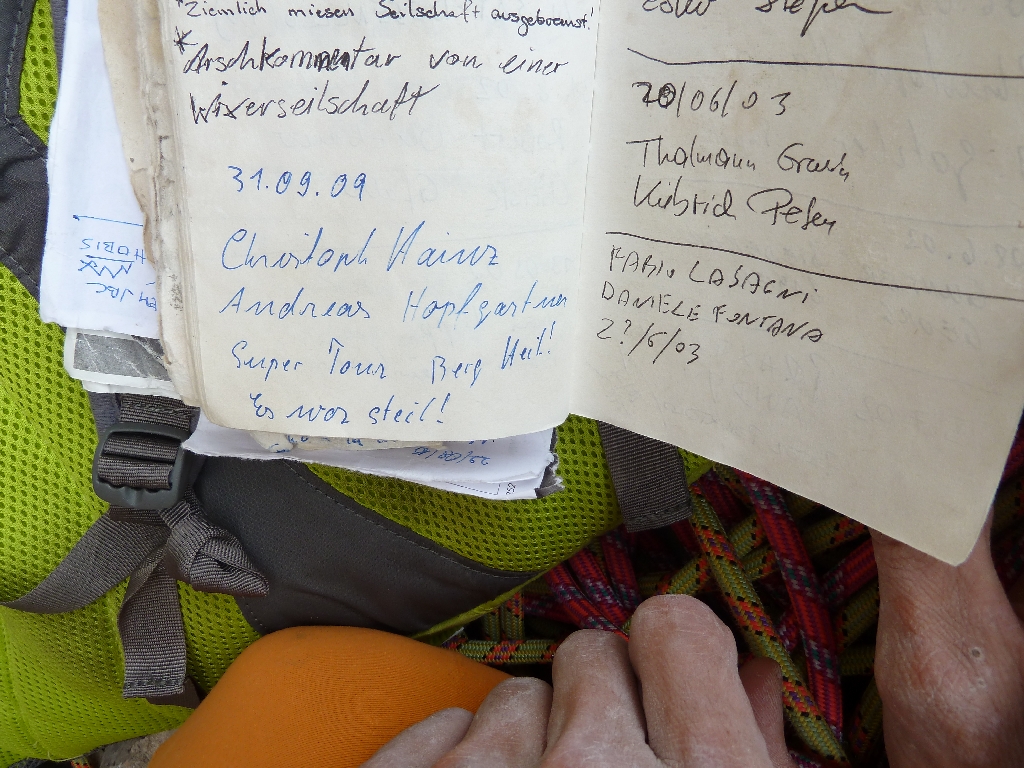 *Ziemlich miesen Seilschaft ausgebremst!
*Arschkommentar von einer
Wixerseilschaft
31.09.09
Christoph Hainz
Andreas Hopfgartner
Super Tour Berg Heil!
Es war steil!
20/06/03
Thalmann
Peter
FABIO LASAGNI
DANIELE FONTANA
2?/6/03
HOBIS